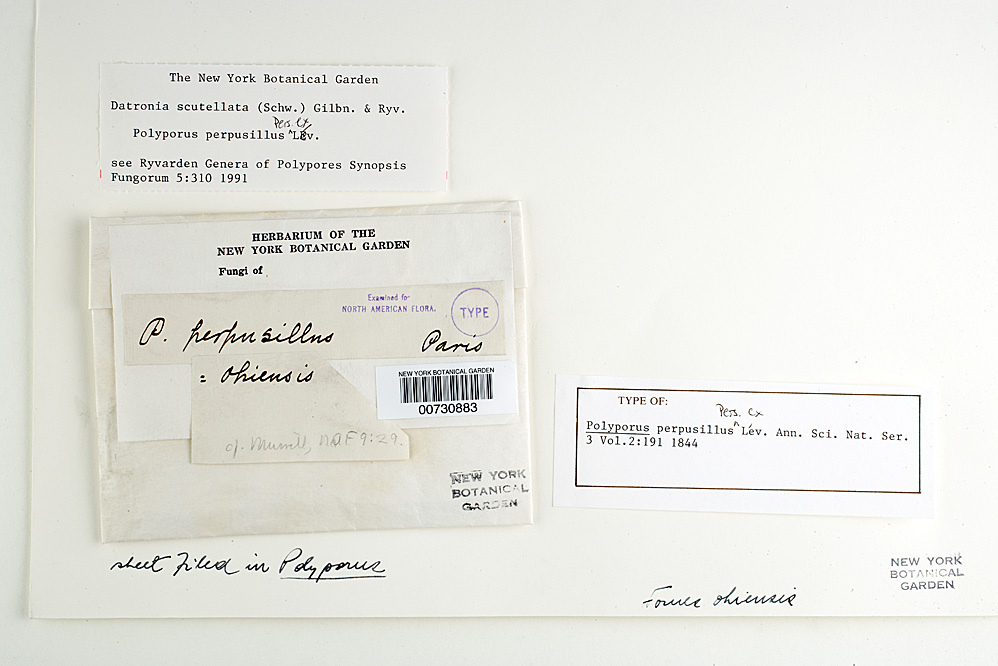 The New York Botanical Garden
Datronia scutellata (Schw.) Gilbn. & Ryv.
Pers. ex
Polyporus perpusillus ^ Lév.
see Ryvarden Genera of Polypores Synopsis
Fungorum 5:310 1991
HERBARIUM OF THE
NEW YORK BOTANICAL GARDEN
Fungi of
Examined for
NORTH AMERICAN FLORA.
TYPE
P. perpusillus Paris
= ohiensis
NEW YORK BOTANICAL GARDEN
00730883
cf. Murrill, N.A.F 9:29.
NEW YORK
BOTANICAL
GARDEN
TYPE OF:
Pers. ex
Polyporus perpusillus ^ Lév. Ann. Sci. Nat. Ser.
3 Vol.2:191 1844
sheet filed in Polyporus
Fomes ohiensis
NEW YORK
BOTANICAL
GARDEN